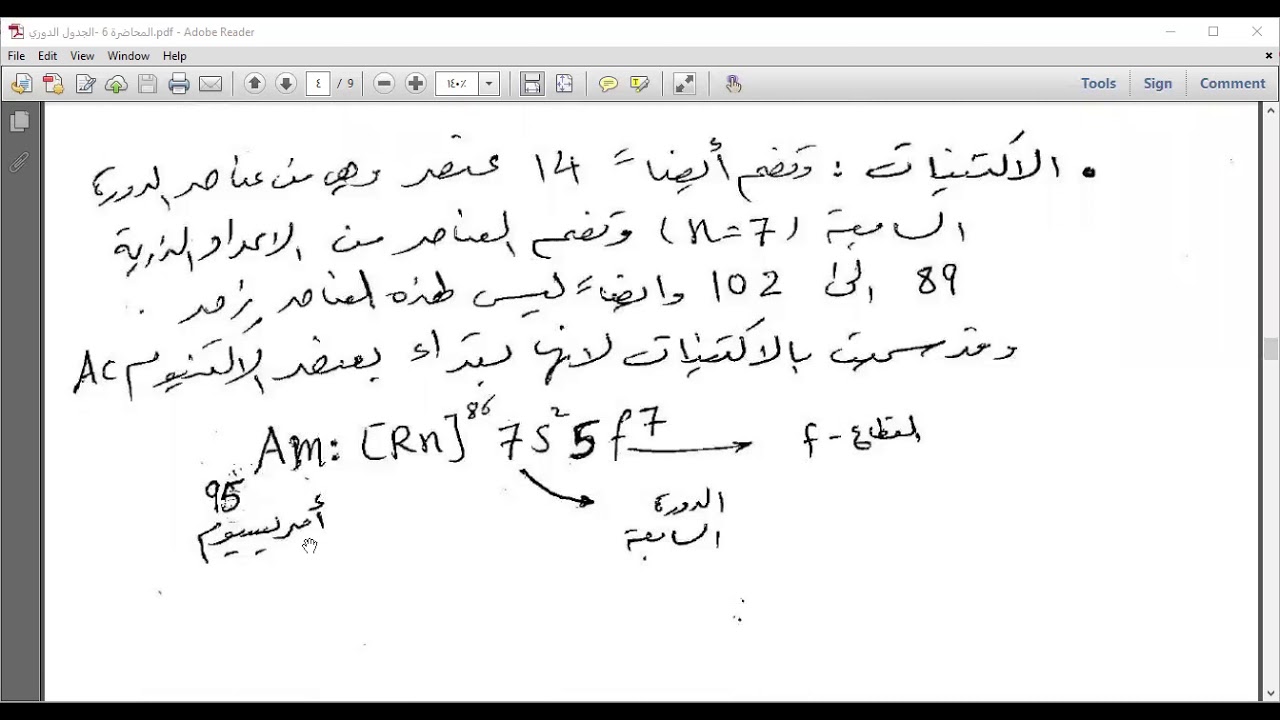 المحاضرة 6 -الجدول الدوري.pdf - Adobe Reader
File Edit View Window Help
٤ / 9 ١٤٠٪ Tools Sign Comment
• الاكتنيات : وتضم أيضاً 14 عنصر وهي من عناصر الدورة
السابعة (n=7) وتضم العناصر من الاعداد الذرية
89 الى 102 وايضاً ليس لهذه العناصر زمر .
وقد سميت بالاكتنيات لانها تبتداء بعنصر الاكتنيوم Ac
Am: [Rn]⁸⁶ 7s² 5f⁷ القطاع - f
95
أمريسيوم
الدورة
السابعة